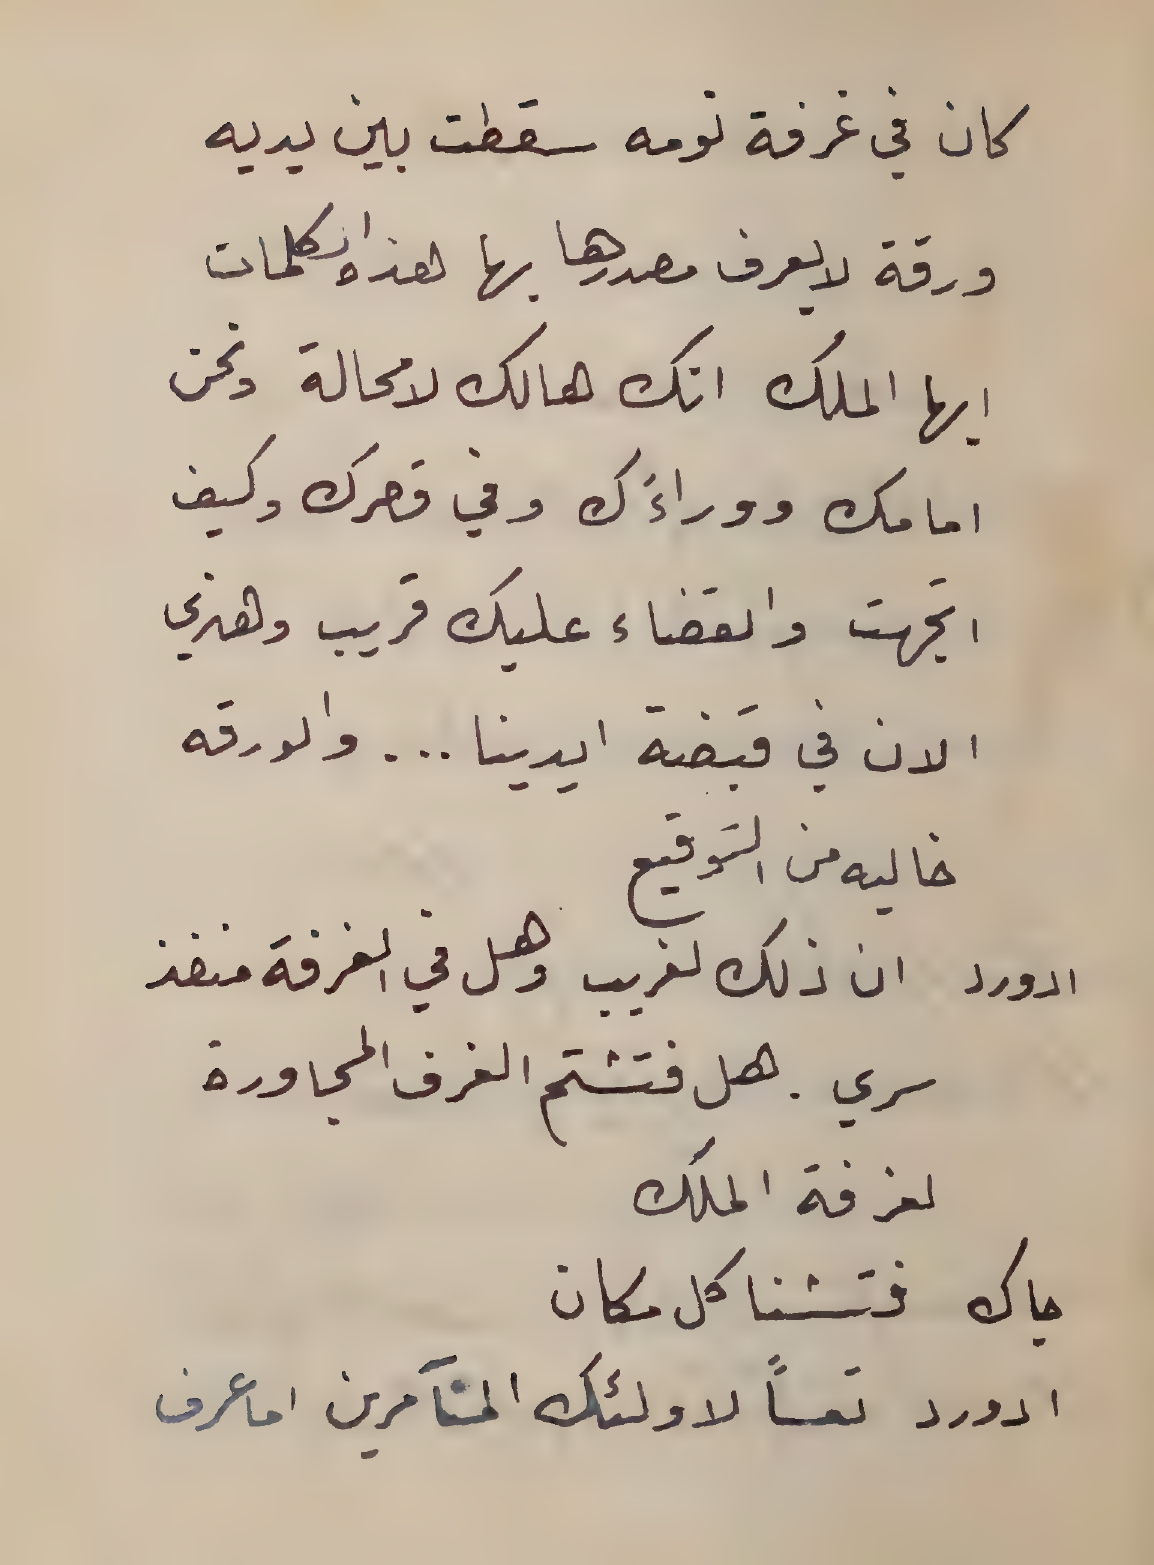 كان في غرفة نومه سقطت بين يديه
ورقة لايعرف مصدرها بها هذه الكلمات
ايها الملك انك هالك لامحالة ونحن
امامك ووراءك وفي قصرك وكيف
اتجهت والقضاء عليك قريب وهنري
الان في قبضة ايدينا ... والورقه
خاليه من التوقيع
ادورد ان ذلك لغريب وهل في الغرفة منفذ
سري . هل فتشتم الغرف المجاورة
لغرفة الملك
جاك فتشنا كل مكان
ادورد تعساً لاولئك المتآمرين اما عرف